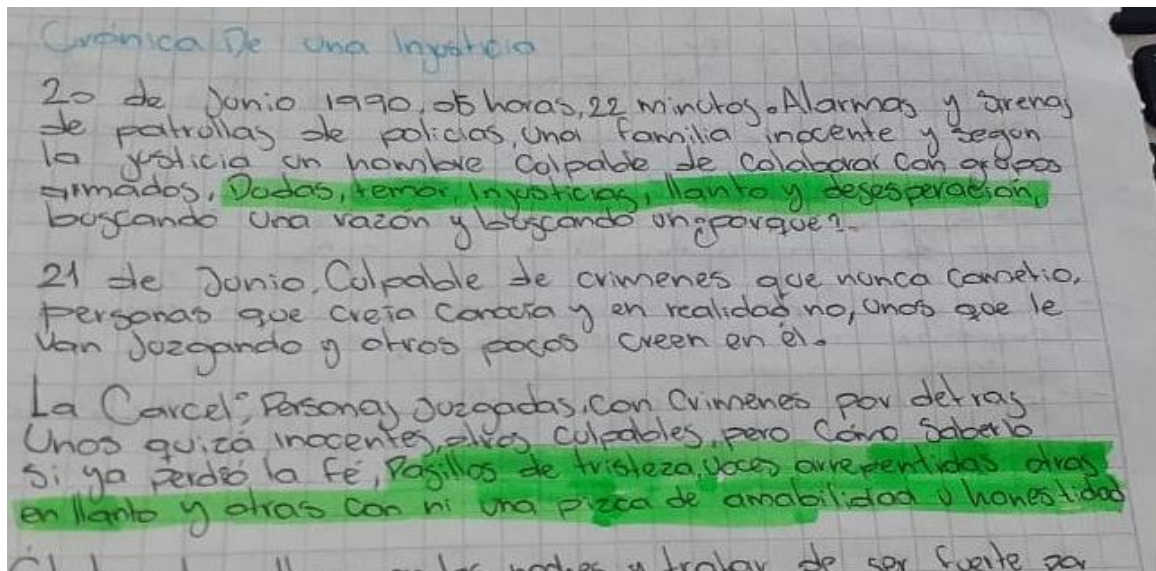 Crónica De una Injusticia
20 de Junio 1990, 05 horas, 22 minutos. Alarmas y sirenas
de patrullas de policias, una familia inocente y segun
la justicia un hombre culpable de colaborar con grupos
armados, Dudas, temor, Injusticias, llanto y desesperación,
buscando una razon y buscando un ¿porque?.
21 de Junio, Culpable de crimenes que nunca cometio,
personas que creía conocía y en realidad no, unos que le
van Juzgando y otros pocos creen en él.
La Carcel; Personas Juzgadas, con Crimenes por detras
Unos quizá inocentes, otros culpables, pero Cómo Saberlo
si ya perdió la fé, Pasillos de tristeza, voces arrepentidas otras
en llanto y otras con ni una pizca de amabilidad u honestidad
noches y tratar de ser fuerte por